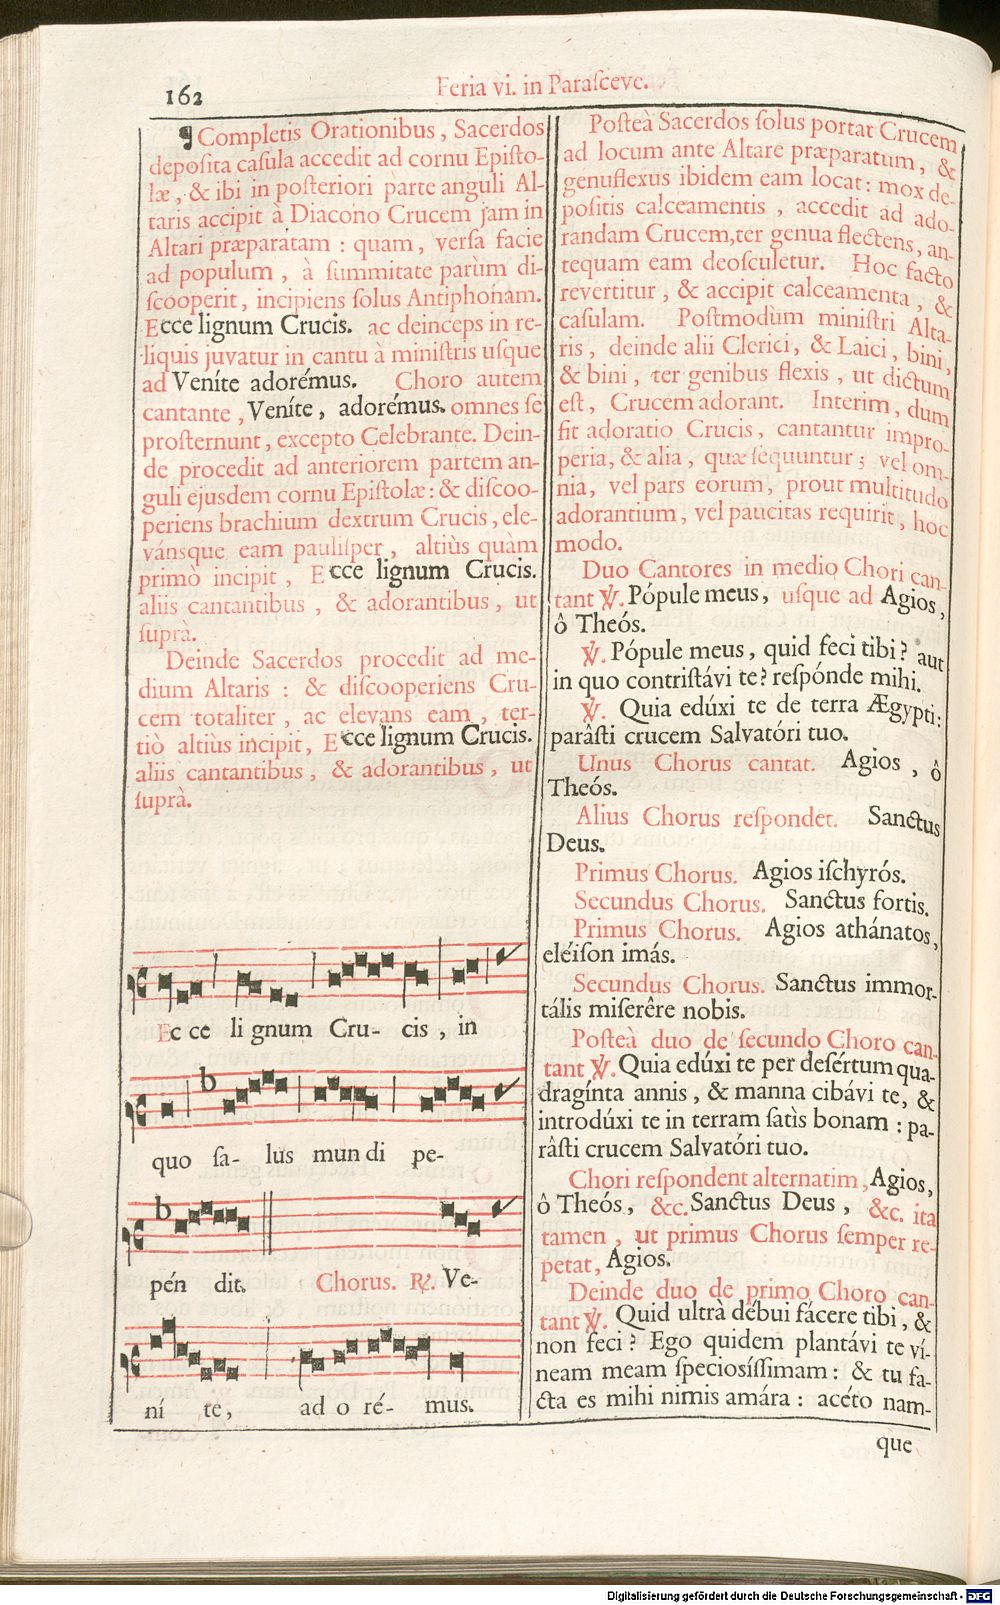 162
Feria vi. in Paraſceve.
¶ Completis Orationibus, Sacerdos
depoſita caſula accedit ad cornu Epiſto-
læ, & ibi in poſteriori parte anguli Al-
taris accipit à Diacono Crucem jam in
Altari præparatam : quam, verſa facie
ad populum, à ſummitate parùm di-
ſcooperit, incipiens ſolus Antiphonam.
Ecce lignum Crucis. ac deinceps in re-
liquis juvatur in cantu à miniſtris uſque
ad Veníte adorémus. Choro autem
cantante, Veníte, adorémus. omnes ſe
proſternunt, excepto Celebrante. Dein-
de procedit ad anteriorem partem an-
guli ejusdem cornu Epiſtolæ : & diſcoo-
periens brachium dextrum Crucis, ele-
vánsque eam pauliſper, altiùs quàm
primò incipit, Ecce lignum Crucis.
aliis cantantibus, & adorantibus, ut
ſuprà.
Deinde Sacerdos procedit ad me-
dium Altaris : & diſcooperiens Cru-
cem totaliter, ac elevans eam, ter-
tiò altiùs incipit, Ecce lignum Crucis.
aliis cantantibus, & adorantibus, ut
ſuprà.
Ec ce li gnum Cru- cis, in
quo ſa- lus mun di pe-
pén dit. Chorus. ℟. Ve-
ní te, ad o ré- mus.
Poſteà Sacerdos ſolus portat Crucem
ad locum ante Altare præparatum, &
genuflexus ibidem eam locat : mox de-
poſitis calceamentis, accedit ad ado-
randam Crucem, ter genua flectens, an-
tequam eam deoſculetur. Hoc facto
revertitur, & accipit calceamenta, &
caſulam. Poſtmodùm miniſtri Alta-
ris, deinde alii Clerici, & Laici, bini,
& bini, ter genibus flexis, ut dictum
eſt, Crucem adorant. Interim, dum
fit adoratio Crucis, cantantur impro-
peria, & alia, quæ ſequuntur ; vel om-
nia, vel pars eorum, prout multitudo
adorantium, vel paucitas requirit, hoc
modo.
Duo Cantores in medio Chori can-
tant ℣. Pópule meus, uſque ad Agios,
ô Theós.
℣. Pópule meus, quid feci tibi? aut
in quo contriſtávi te? reſpónde mihi.
℣. Quia edúxi te de terra Ægypti:
parâſti crucem Salvatóri tuo.
Unus Chorus cantat. Agios, ô
Theós.
Alius Chorus reſpondet. Sanctus
Deus.
Primus Chorus. Agios iſchyrós.
Secundus Chorus. Sanctus fortis.
Primus Chorus. Agios athánatos,
eléiſon imás.
Secundus Chorus. Sanctus immor-
tális miſerêre nobis.
Poſteà duo de ſecundo Choro can-
tant ℣. Quia edúxi te per deſértum qua-
dragínta annis, & manna cibávi te, &
introdúxi te in terram ſatìs bonam : pa-
râſti crucem Salvatóri tuo.
Chori reſpondent alternatim, Agios,
ô Theós, &c. Sanctus Deus, &c. ita
tamen, ut primus Chorus ſemper re-
petat, Agios.
Deinde duo de primo Choro can-
tant ℣. Quid ultrà débui fácere tibi, &
non feci? Ego quidem plantávi te ví-
neam meam ſpeciosíſſimam : & tu fa-
cta es mihi nimis amára : acéto nam-
que
Digitalisierung gefördert durch die Deutsche Forschungsgemeinschaft - DFG